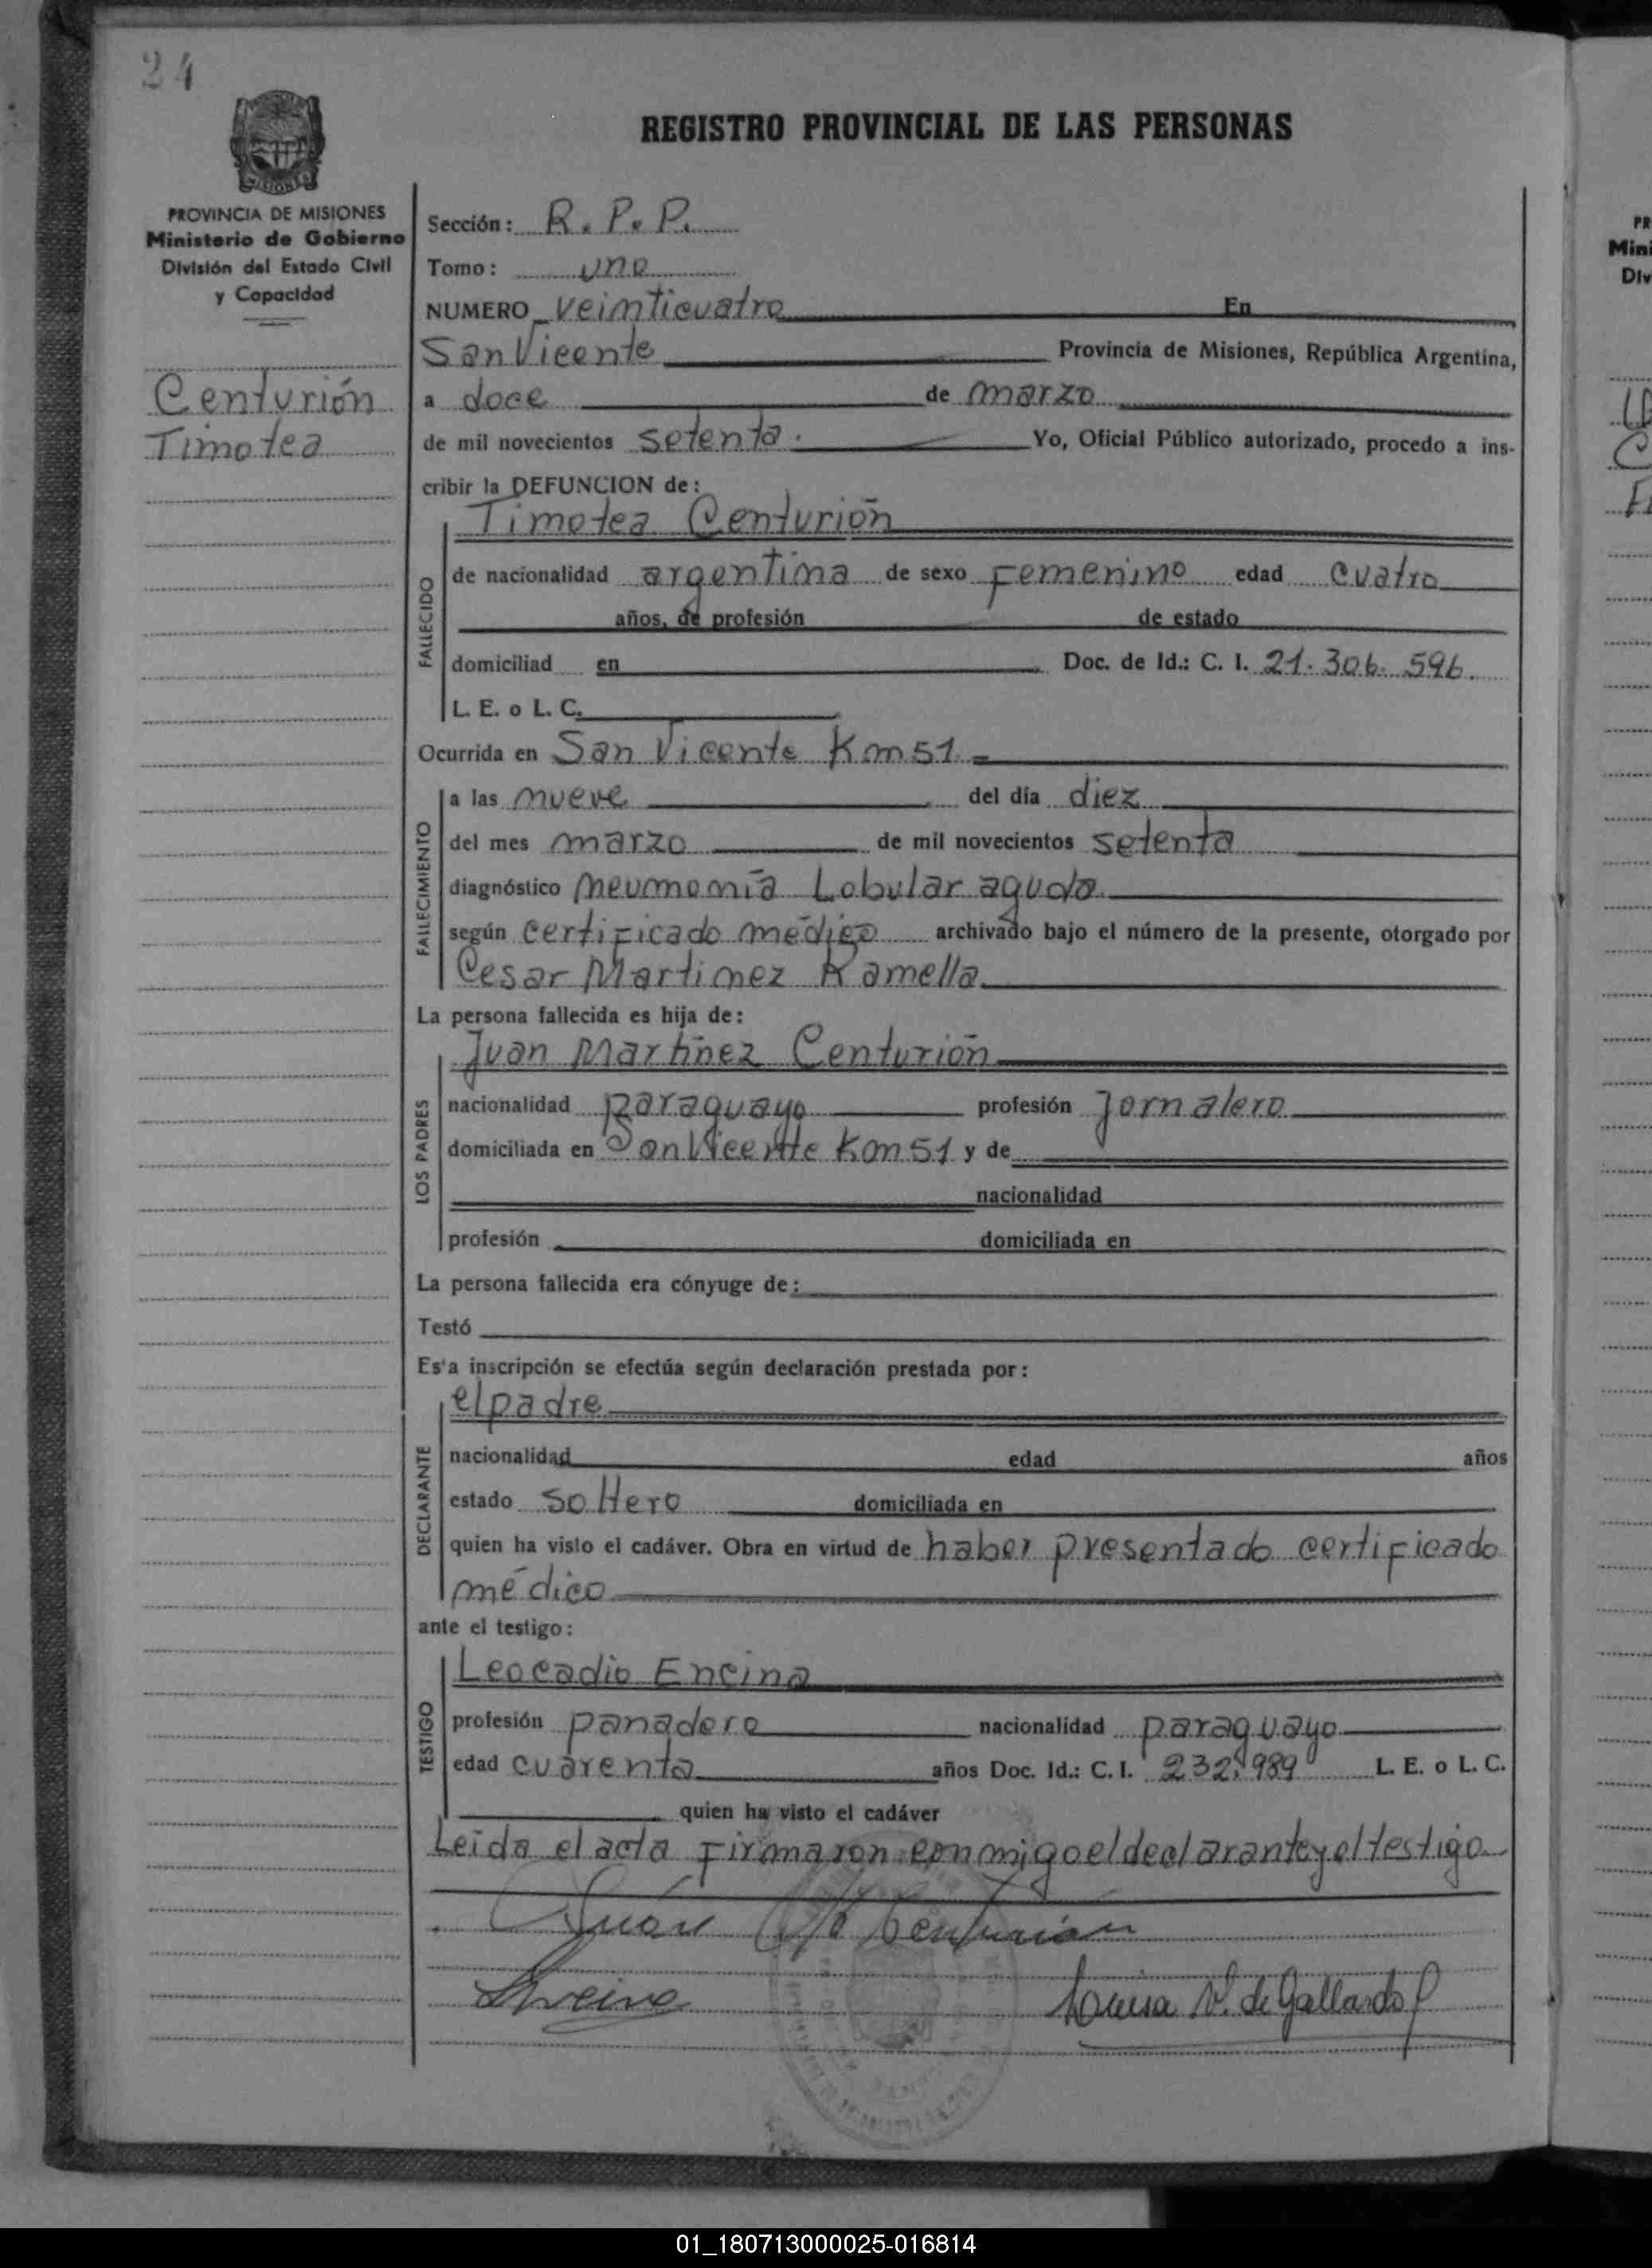 24
REGISTRO PROVINCIAL DE LAS PERSONAS
MISIONES
PROVINCIA DE MISIONES
Ministerio de Gobierno
División del Estado Civil
y Capacidad
Centurión
Timotea
Sección: R. P. P.
Tomo: uno
NUMERO veinticuatro En
San Vicente Provincia de Misiones, República Argentina,
a doce de marzo
de mil novecientos setenta. Yo, Oficial Público autorizado, procedo a ins-
cribir la DEFUNCION de:
Timotea Centurión
FALLECIDO
de nacionalidad argentina de sexo Femenino edad cuatro
años, de profesión de estado
domiciliad en Doc. de Id.: C. I. 21.306.596.
L. E. o L. C.
Ocurrida en San Vicente Km 51.
FALLECIMIENTO
a las nueve del día diez
del mes marzo de mil novecientos setenta
diagnóstico neumonía Lobular aguda.
según certificado médico archivado bajo el número de la presente, otorgado por
Cesar Martinez Ramella.
La persona fallecida es hija de:
Juan Martínez Centurión
LOS PADRES
nacionalidad paraguayo profesión Jornalero
domiciliada en San Vicente Km 51 y de
nacionalidad
profesión domiciliada en
La persona fallecida era cónyuge de:
Testó
Es'a inscripción se efectúa según declaración prestada por:
el padre
DECLARANTE
nacionalidad edad años
estado soltero domiciliada en
quien ha visto el cadáver. Obra en virtud de haber presentado certificado
médico
ante el testigo:
Leocadio Encina
TESTIGO
profesión panadero nacionalidad paraguayo
edad cuarenta años Doc. Id.: C. I. 232.989 L. E. o L. C.
quien ha visto el cadáver
Leida el acta Firmaron conmigo el declarante y el testigo.
Juan Centurión
Louisa V. de Gallardo
01_180713000025-016814